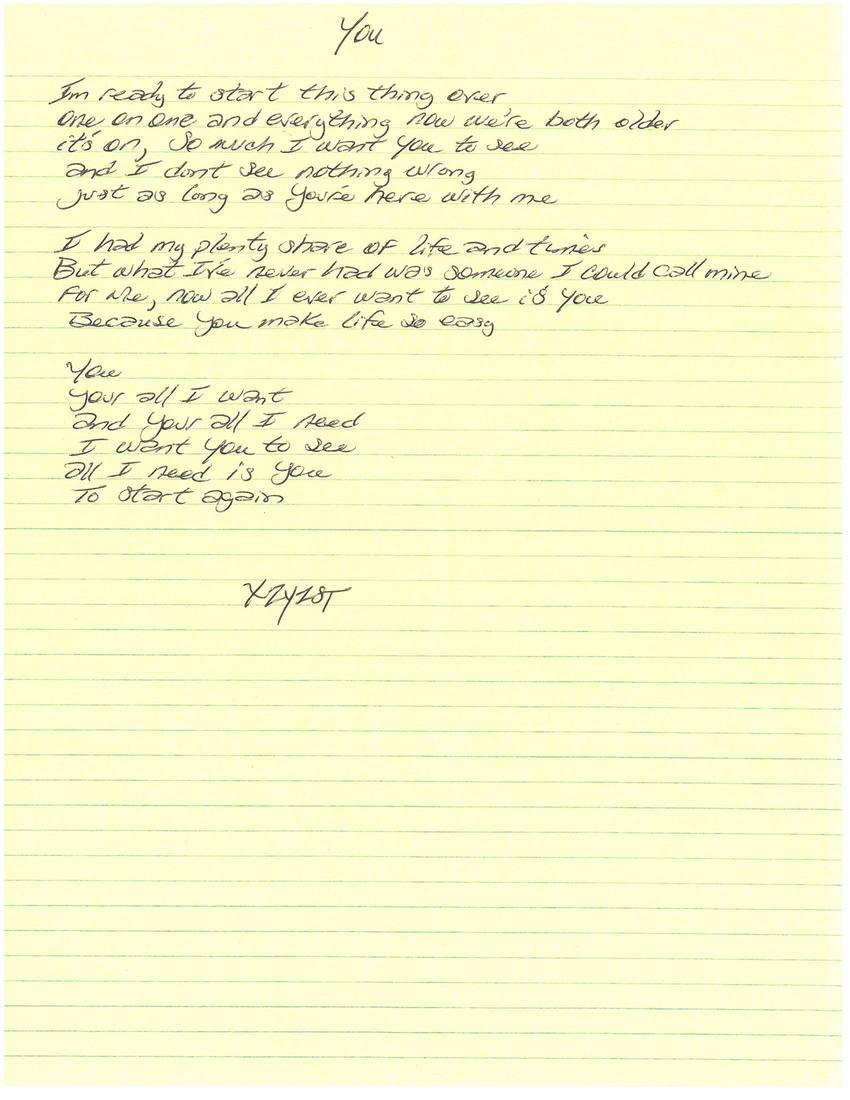 You
I'm ready to start this thing over
one on one and everything now we're both older
it's on, So much I want you to see
and I don't see nothing wrong
just as long as you're here with me
I had my plenty share of life and times
But what I've never had was someone I could call mine
For me, now all I ever want to see is you
Because you make life so easy
You
your all I want
and your all I need
I want you to see
all I need is you
To start again